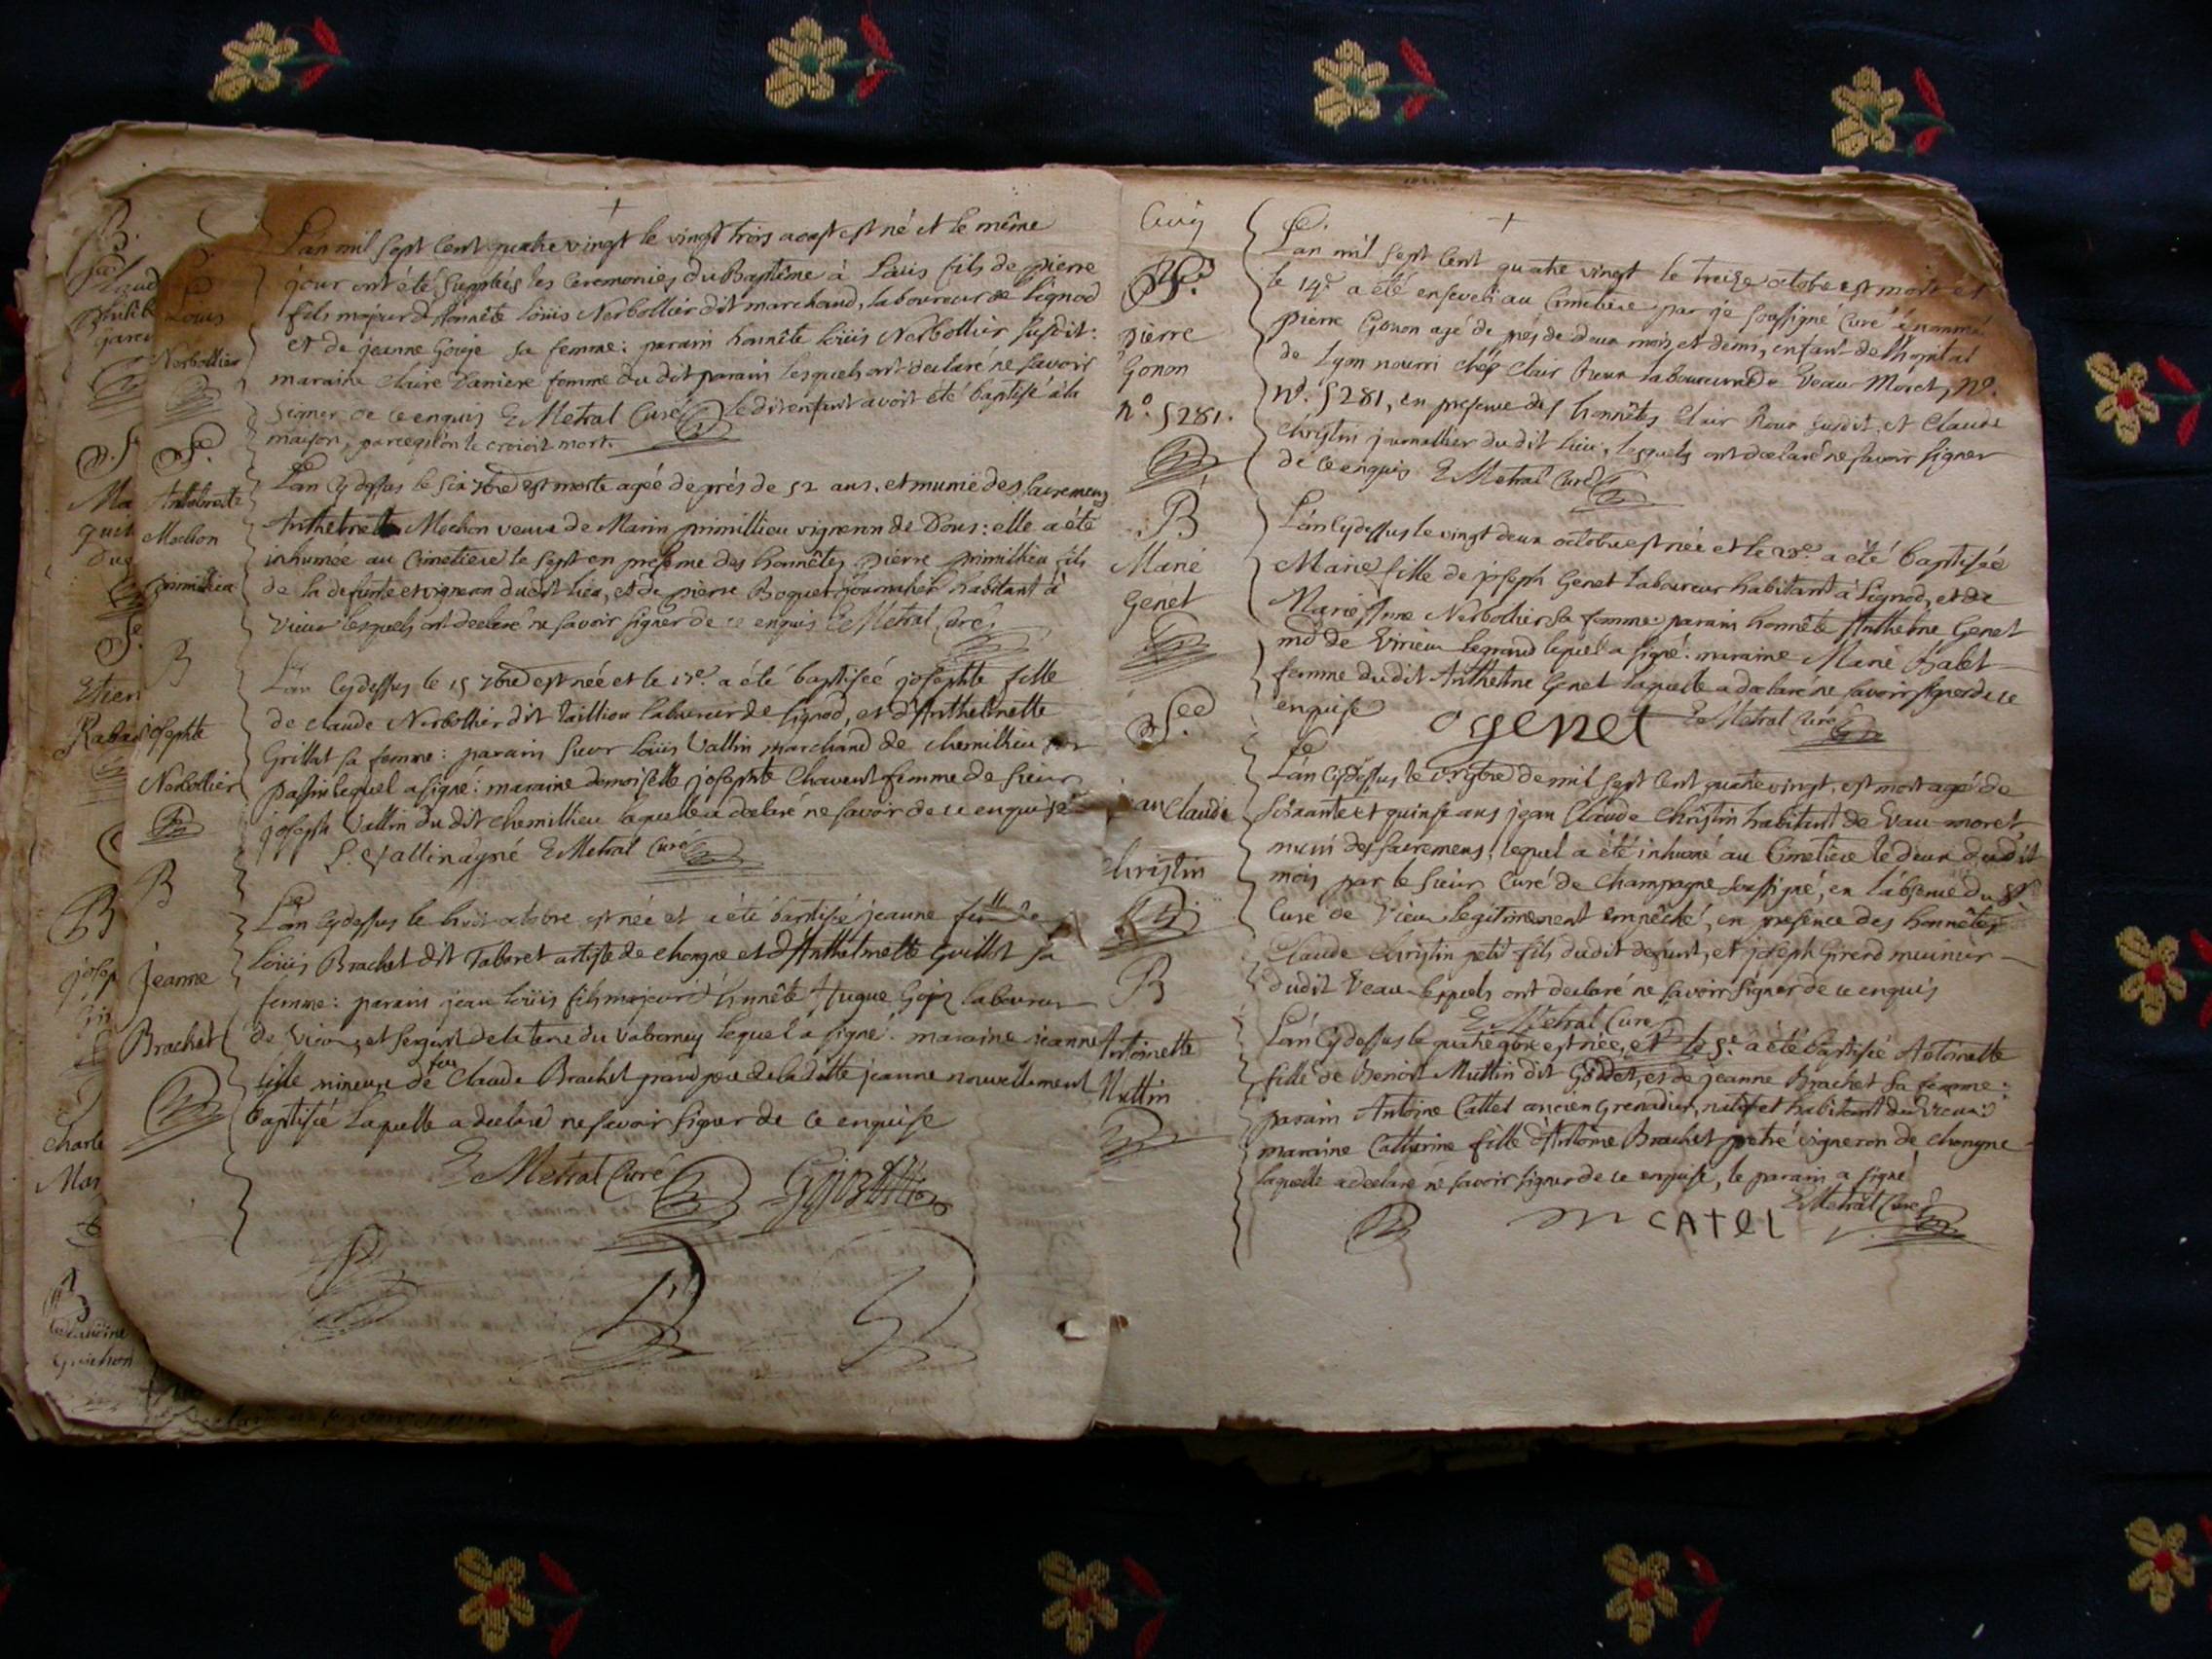 L'an mil sept cent quatre vingt le vingt trois aoust est né et le même
jour ont été suppléés les ceremonies du Baptême à Loüis fils de pierre
fils majeur d'honnête loüis Nerbollier dit marchand, laboureur de Lignod
et de jeanne Goyje sa femme: parain honnête loüis Nerbollier susdit:
maraine Claire femme du dit parain lesquels ont declaré ne savoir
signer de ce enquis E Metral Curé le dit enfant avoit été baptisé à la
maison, parcequ'on le croioit mort.
Louis
Nerbollier
L'an cy dessus le six 7bre est morte agée de près de 52 ans, et munie des sacremens
Anthelmette Mochon veuve de Marin primillieu vigneron de Dons: elle a été
inhumée au Cimetiere le sept en presence des honnêtes pierre primillieu fils
de la defunte et vigneron du dit lieu, et de pierre Boquet journalier habitant à
Vieux lesquels ont declaré ne savoir signer de ce enquis E Metral Curé
Anthelmette
Mochon
primillieu
L'an cy dessus le 15 7bre est née et le 17e. a été baptisée josephte fille
de claude Nerbollier dit Taillion laboureur de lignod, et d'Anthelmette
Grillat sa femme: parain sieur loüis Vallin marchand de chemillieu
passin lequel a signé: maraine demoiselle josephte Chavent femme de sieur
joseph Vallin du dit chemillieu laquelle a declaré ne savoir de ce enquise
L. Vallin signé E Metral Curé
B
josephte
Nerbollier
L'an cy dessus le huit octobre est née et a été baptisée jeanne fille de
Loüis Brachet dit Tabaret artiste de chongne et d'Anthelmette Guillot sa
femme: parain jean loüis fils majeur d'honnête Hugue Gojoz laboureur
de Vieux, et sergent de la terre du valromey lequel a signé. maraine jeanne
fille mineure de feu Claude Brachet grand pere de la ditte jeanne nouvellement
baptisée laquelle a declaré ne savoir signer de ce enquise
E Metral Curé
B
jeanne
Brachet
L'an mil sept cent quatre vingt le treize octobre est mort et
le 14e. a été enseveli au Cimetiere par je soussigné Curé
pierre Gonon agé de près de deux mois et demi, enfant de l'hopital
de Lyon nourri chés Clair Roux laboureur de Veau-Moret, No.
no. 5281, en presence des honnêtes Clair Roux susdit, et Claude
Christin journallier du dit lieu, lesquels ont declaré ne savoir signer
de ce enquis E Metral Curé
S.re
pierre
Gonon
no. 5281.
L'an cy dessus le vingt deux octobre est née et le 23e. a été baptisée
Marie fille de joseph Genet laboureur habitant à Lignod, et de
Marie Anne Nerbollier sa femme: parain honnête Anthelme Genet
md de Virieu legrand lequel a signé. maraine Marie Balet
femme du dit Anthelme Genet laquelle a declaré ne savoir signer de ce
enquise genet E Metral Curé
B
Marie
Genet
L'an cy dessus le 1er 9bre de mil sept cent quatre vingt, est mort agé de
soixante et quinse ans jean Claude Christin habitant de Vau-moret
muni des sacremens, lequel a été inhumé au Cimetiere le deux du dit
mois par le sieur Curé de Champagne soussigné, en l'absence du Sr.
Curé de Vieu legitimement empêché, en presence des honnêtes
Claude Christin petit fils du dit defunt, et joseph Girerd munier
du dit Veau lesquels ont declaré ne savoir signer de ce enquis
E. Metral Curé
jean Claude
Christin
L'an cy dessus le quatre 9bre est née, et le 5e. a été baptisée Antoinette
fille de Benoit Muttin dit Godet, et de jeanne Brachet sa femme:
parain Antoine Cattel ancien Grenadier, natif et habitant du Vieux:
maraine Catherine fille d'Antoine Brachet vigneron de chongne
laquelle a declaré ne savoir signer de ce enquise, le parain a signé
E Metral Curé
CAtel
B
Antoinette
Muttin